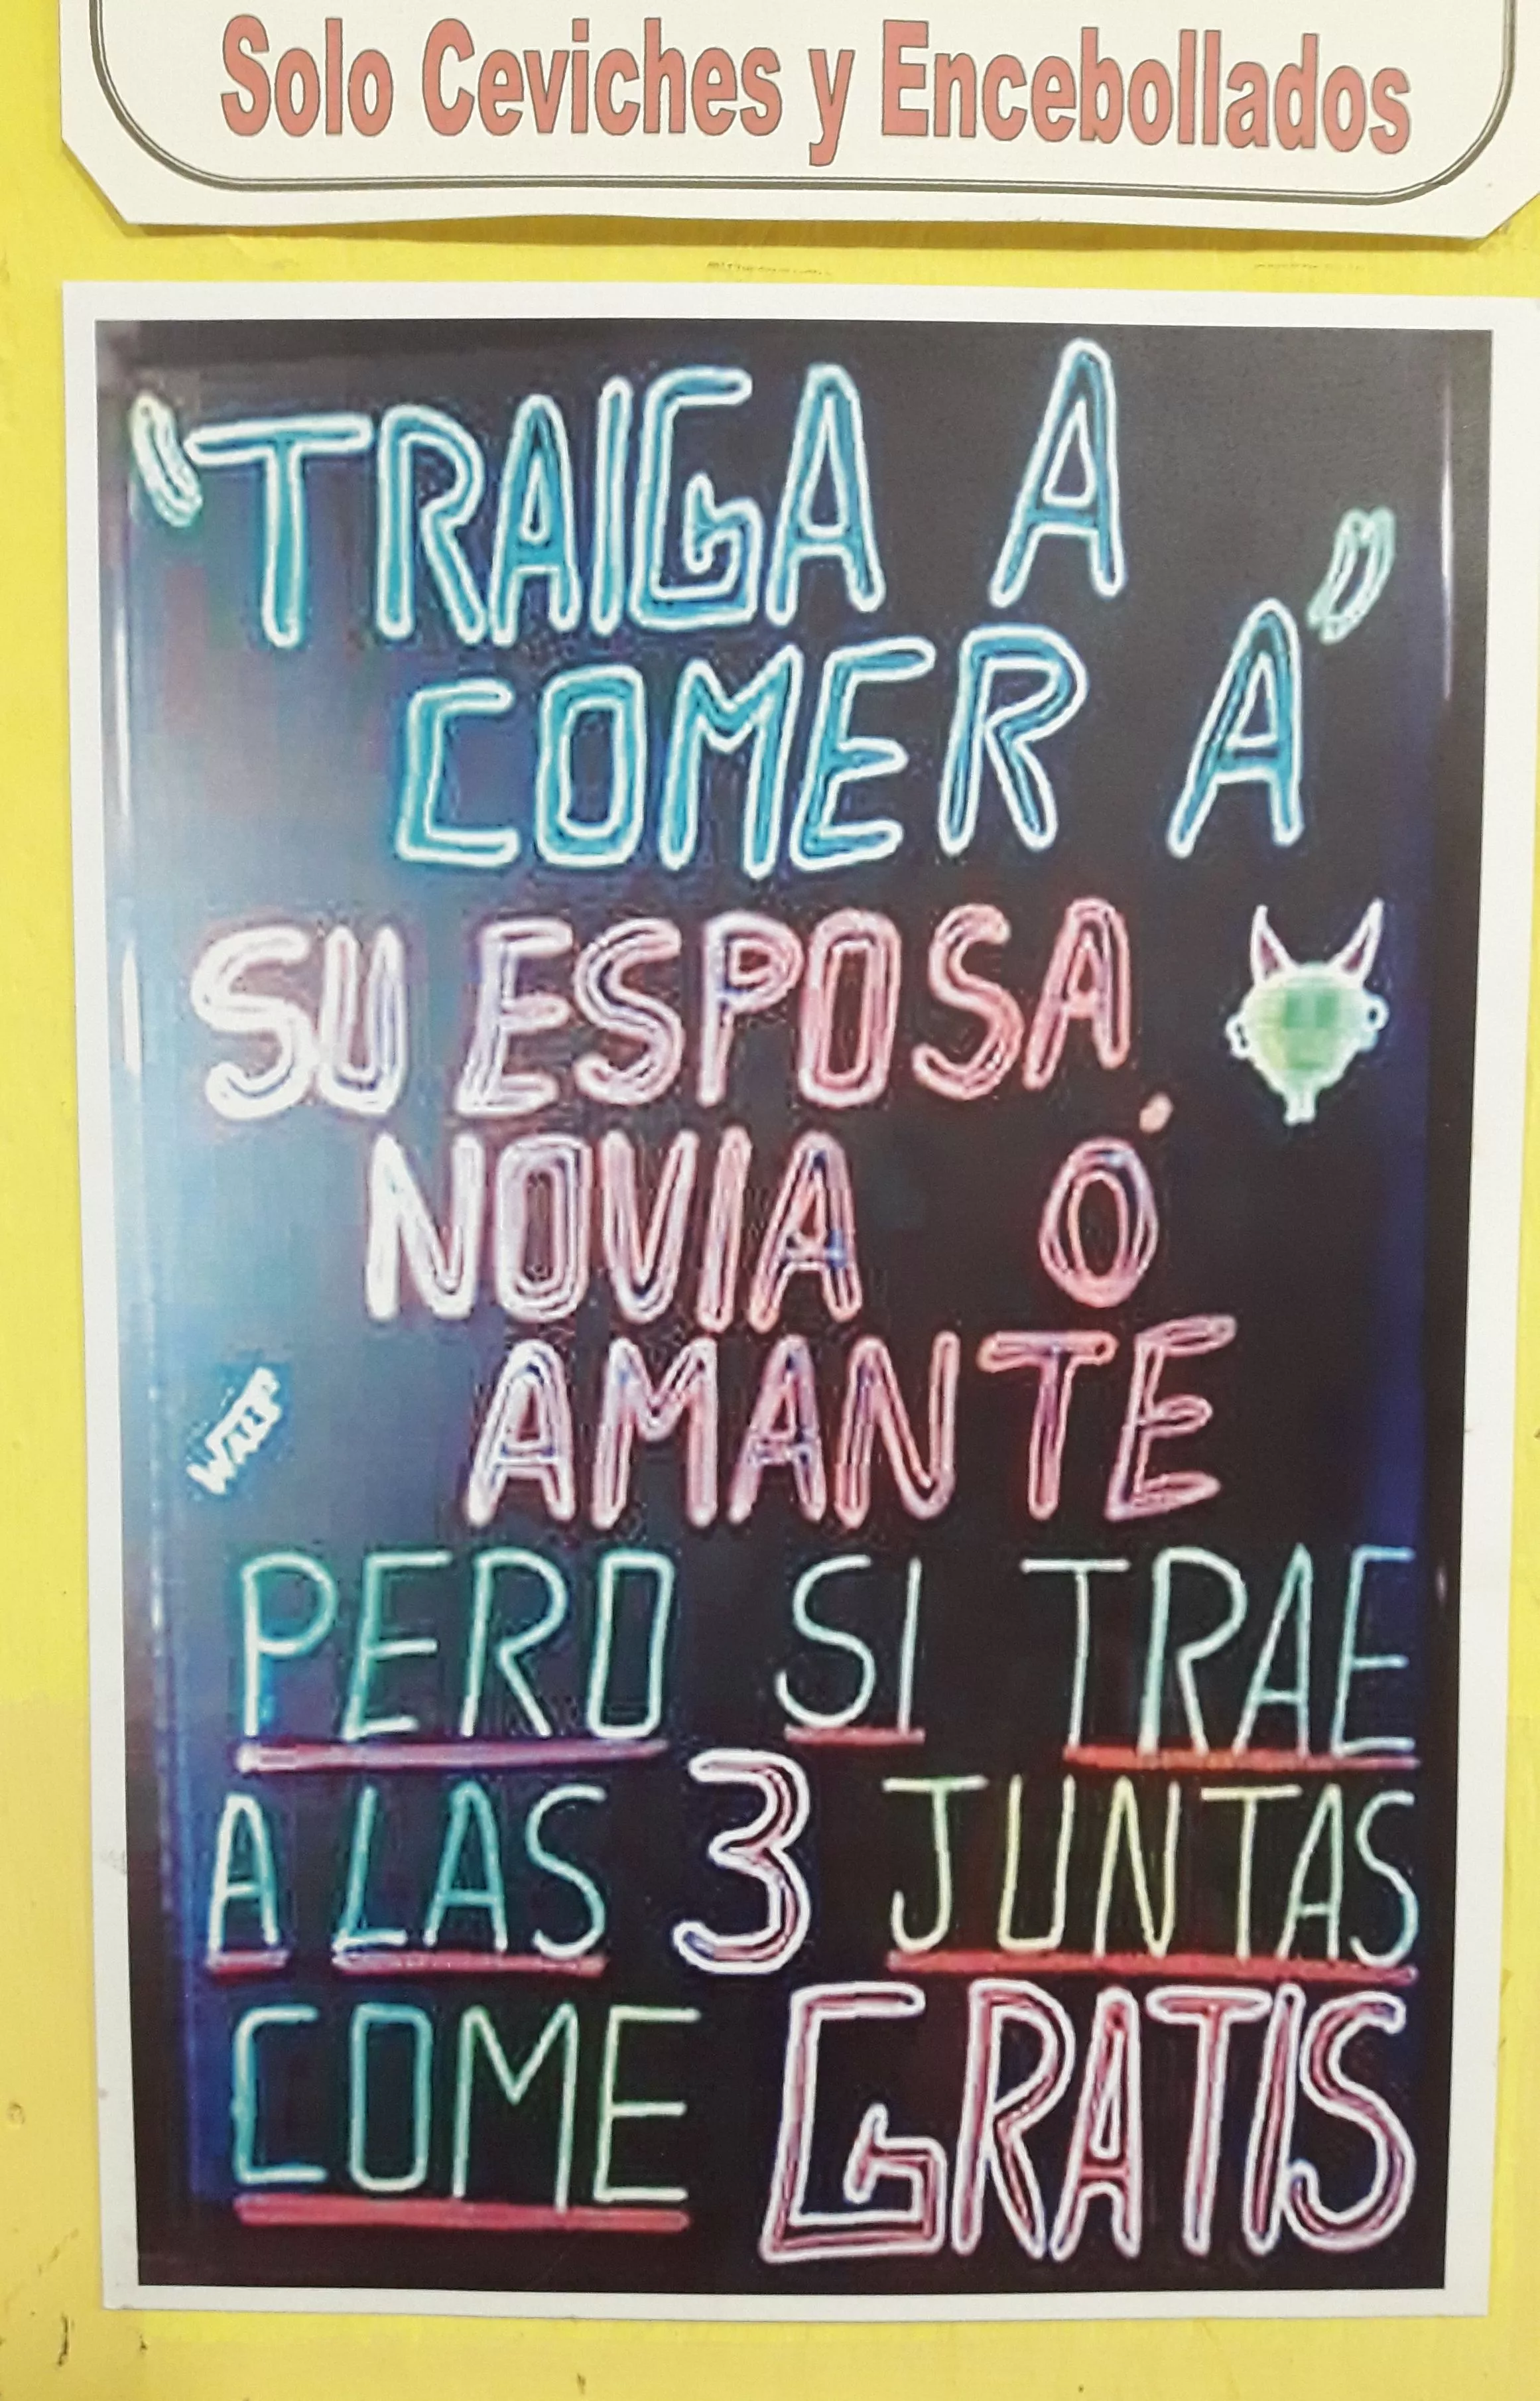 Solo Ceviches y Encebollados
"TRAIGA A
COMER A"
SU ESPOSA
NOVIA Ó
AMANTE
PERO SI TRAE
A LAS 3 JUNTAS
COME GRATIS